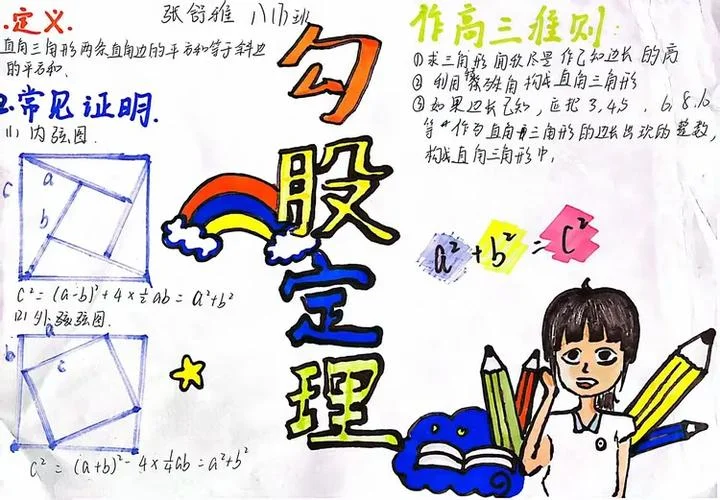 张舒雅 八(1)班
1.定义.
直角三角形两条直角边的平方和等于斜边
的平方和.
2.常见证明.
(1) 内弦图.
c
a
b
c² = (a-b)² + 4×½ab = a²+b²
(2) 外弦图.
a
b
c
c² = (a+b)² - 4×¼ab = a²+b²
勾
股
定
理
作高三准则:
① 求三角形面积尽量作已知边长的高
② 利用特殊角构成直角三角形
③ 如果边长已知, 应把 3.4.5 . 6.8.10
等"作为直角三角形的边长出现的整数,
构成直角三角形中.
a²+b²=c²